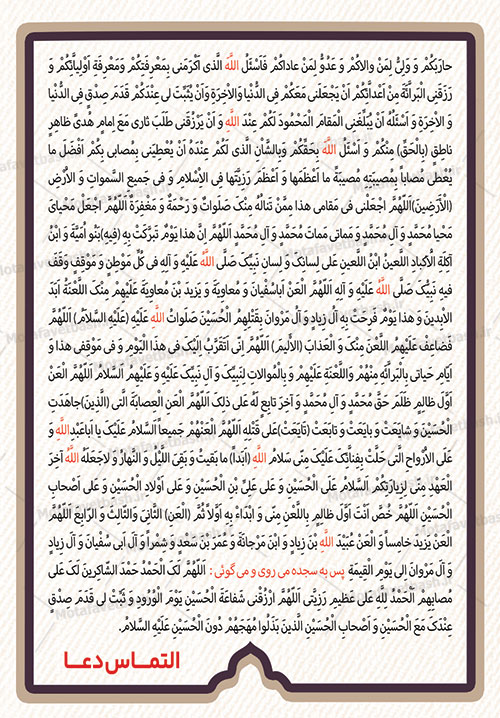 حارَبَکُمْ وَ وَلِیٌّ لِمَنْ والاکُمْ وَ عَدُوٌّ لِمَنْ عاداکُمْ فَاَسْئَلُ اللَّهَ الَّذی اَکْرَمَنی بِمَعْرِفَتِکُمْ وَمَعْرِفَةِ اَوْلِیاَّئِکُمْ وَ
رَزَقَنِی الْبَرآئَةَ مِنْ اَعْدآئِکُمْ اَنْ یَجْعَلَنی مَعَکُمْ فِی الدُّنْیا وَالاْخِرَةِ وَاَنْ یُثَبِّتَ لی عِنْدَکُمْ قَدَمَ صِدْقٍ فِی الدُّنْیا
وَ الاْخِرَةِ وَ اَسْئَلُهُ اَنْ یُبَلِّغَنِی الْمَقامَ الْمَحْمُودَ لَکُمْ عِنْدَ اللَّهِ وَ اَنْ یَرْزُقَنی طَلَبَ ثاری مَعَ اِمامٍ هُدیً ظاهِرٍ
ناطِقٍ (بِالْحَقِّ) مِنْکُمْ وَ اَسْئَلُ اللَّهَ بِحَقِّکُمْ وَبِالشَّاْنِ الَّذی لَکُمْ عِنْدَهُ اَنْ یُعْطِیَنی بِمُصابی بِکُمْ اَفْضَلَ ما
یُعْطی مُصاباً بِمُصیبَتِهِ مُصیبَةً ما اَعْظَمَها وَ اَعْظَمَ رَزِیَّتَها فِی الاِْسْلامِ وَ فی جَمیعِ السَّمواتِ وَ الاْرْضِ
(الْاَرَضینَ)اَللّهُمَّ اجْعَلْنی فی مَقامی هذا مِمَّنْ تَنالُهُ مِنْکَ صَلَواتٌ وَ رَحْمَةٌ وَ مَغْفِرَةٌ اَللّهُمَّ اجْعَلْ مَحْیایَ
مَحْیا مُحَمَّدٍ وَ آلِ مُحَمَّدٍ وَ مَماتی مَماتَ مُحَمَّدٍ وَ آلِ مُحَمَّدٍ اَللّهُمَّ اِنَّ هذا یَوْمٌ تَبَرَّکَتْ بِهِ (فِیهِ)بَنُو اُمَیَّةَ وَ ابْنُ
آکِلَةِ الْاَکْبادِ اللَّعینُ ابْنُ اللَّعینِ عَلی لِسانِکَ وَ لِسانِ نَبِیِّکَ صَلَّی اللَّهُ عَلَیْهِ وَ آلِهِ فی کُلِّ مَوْطِنٍ وَ مَوْقِفٍ وَقَفَ
فیهِ نَبِیُّکَ صَلَّی اللَّهُ عَلَیْهِ وَ آلِهِ اَللّهُمَّ الْعَنْ اَباسُفْیانَ وَ مُعاوِیَةَ وَ یَزیدَ بْنَ مُعاوِیَةَ عَلَیْهِمْ مِنْکَ اللَّعْنَةُ اَبَدَ
الاْبِدینَ وَ هذا یَوْمٌ فَرِحَتْ بِهِ آلُ زِیادٍ وَ آلُ مَرْوانَ بِقَتْلِهِمُ الْحُسَیْنَ صَلَواتُ اللَّهِ عَلَیْهِ (عَلَیْهِ السَّلامُ) اَللّهُمَّ
فَضاعِفْ عَلَیْهِمُ اللَّعْنَ مِنْکَ وَ الْعَذابَ (الْاَلیمَ) اَللّهُمَّ اِنّی اَتَقَرَّبُ اِلَیْکَ فی هذَا الْیَوْمِ وَ فی مَوْقِفی هذا وَ
اَیّامِ حَیاتی بِالْبَرآئَةِ مِنْهُمْ وَاللَّعْنَةِ عَلَیْهِمْ وَ بِالْمُوالاتِ لِنَبِیِّکَ وَ آلِ نَبِیِّکَ عَلَیْهِ وَ عَلَیْهِمُ اَلسَّلامُ اَللّهُمَّ الْعَنْ
اَوَّلَ ظالِمٍ ظَلَمَ حَقَّ مُحَمَّدٍ وَ آلِ مُحَمَّدٍ وَ آخِرَ تابِعٍ لَهُ عَلی ذلِکَ اَللّهُمَّ الْعَنِ الْعِصابَةَ الَّتی (الَّذینَ)جاهَدَتِ
الْحُسَیْنَ وَ شایَعَتْ وَ بایَعَتْ وَ تابَعَتْ (تایَعَتْ)عَلی قَتْلِهِ اَللّهُمَّ الْعَنْهُمْ جَمیعاً اَلسَّلامُ عَلَیْکَ یا اَباعَبْدِاللَّهِ وَ
عَلَی الاَْرْواحِ الَّتی حَلَّتْ بِفِنآئِکَ عَلَیْکَ مِنّی سَلامُ اللَّهِ (اَبَداً) ما بَقیتُ وَ بَقِیَ اللَّیْلُ وَ النَّهارُ وَ لاجَعَلَهُ اللَّهُ آخِرَ
الْعَهْدِ مِنّی لِزِیارَتِکُمْ اَلسَّلامُ عَلَی الْحُسَیْنِ وَ عَلی عَلِیِّ بْنِ الْحُسَیْنِ وَ عَلی اَوْلادِ الْحُسَیْنِ وَ عَلی اَصْحابِ
الْحُسَیْنِ اَللّهُمَّ خُصَّ اَنْتَ اَوَّلَ ظالِمٍ بِاللَّعْنِ مِنّی وَ ابْدَاءْ بِهِ اَوَّلاً ثُمَّ (الْعَنِ) الثّانِیَ وَالثّالِثَ وَ الرّابِعَ اَللّهُمَّ
الْعَنْ یَزیدَ خامِساً وَ الْعَنْ عُبَیْدَ اللَّهِ بْنَ زِیادٍ وَ ابْنَ مَرْجانَةَ وَ عُمَرَ بْنَ سَعْدٍ وَ شِمْراً وَ آلَ اَبی سُفْیانَ وَ آلَ زِیادٍ
وَ آلَ مَرْوانَ اِلی یَوْمِ الْقِیمَةِ پس به سجده می روی و می گوئی : اَللّهُمَّ لَکَ الْحَمْدُ حَمْدَ الشّاکِرینَ لَکَ عَلی
مُصابِهِمْ اَلْحَمْدُ لِلَّهِ عَلی عَظیمِ رَزِیَّتی اَللّهُمَّ ارْزُقْنی شَفاعَةَ الْحُسَیْنِ یَوْمَ الْوُرُودِ وَ ثَبِّتْ لی قَدَمَ صِدْقٍ
عِنْدَکَ مَعَ الْحُسَیْنِ وَ اَصْحابِ الْحُسَیْنِ الَّذینَ بَذَلُوا مُهَجَهُمْ دُونَ الْحُسَیْنِ عَلَیْهِ السَّلامُ.
التماس دعا